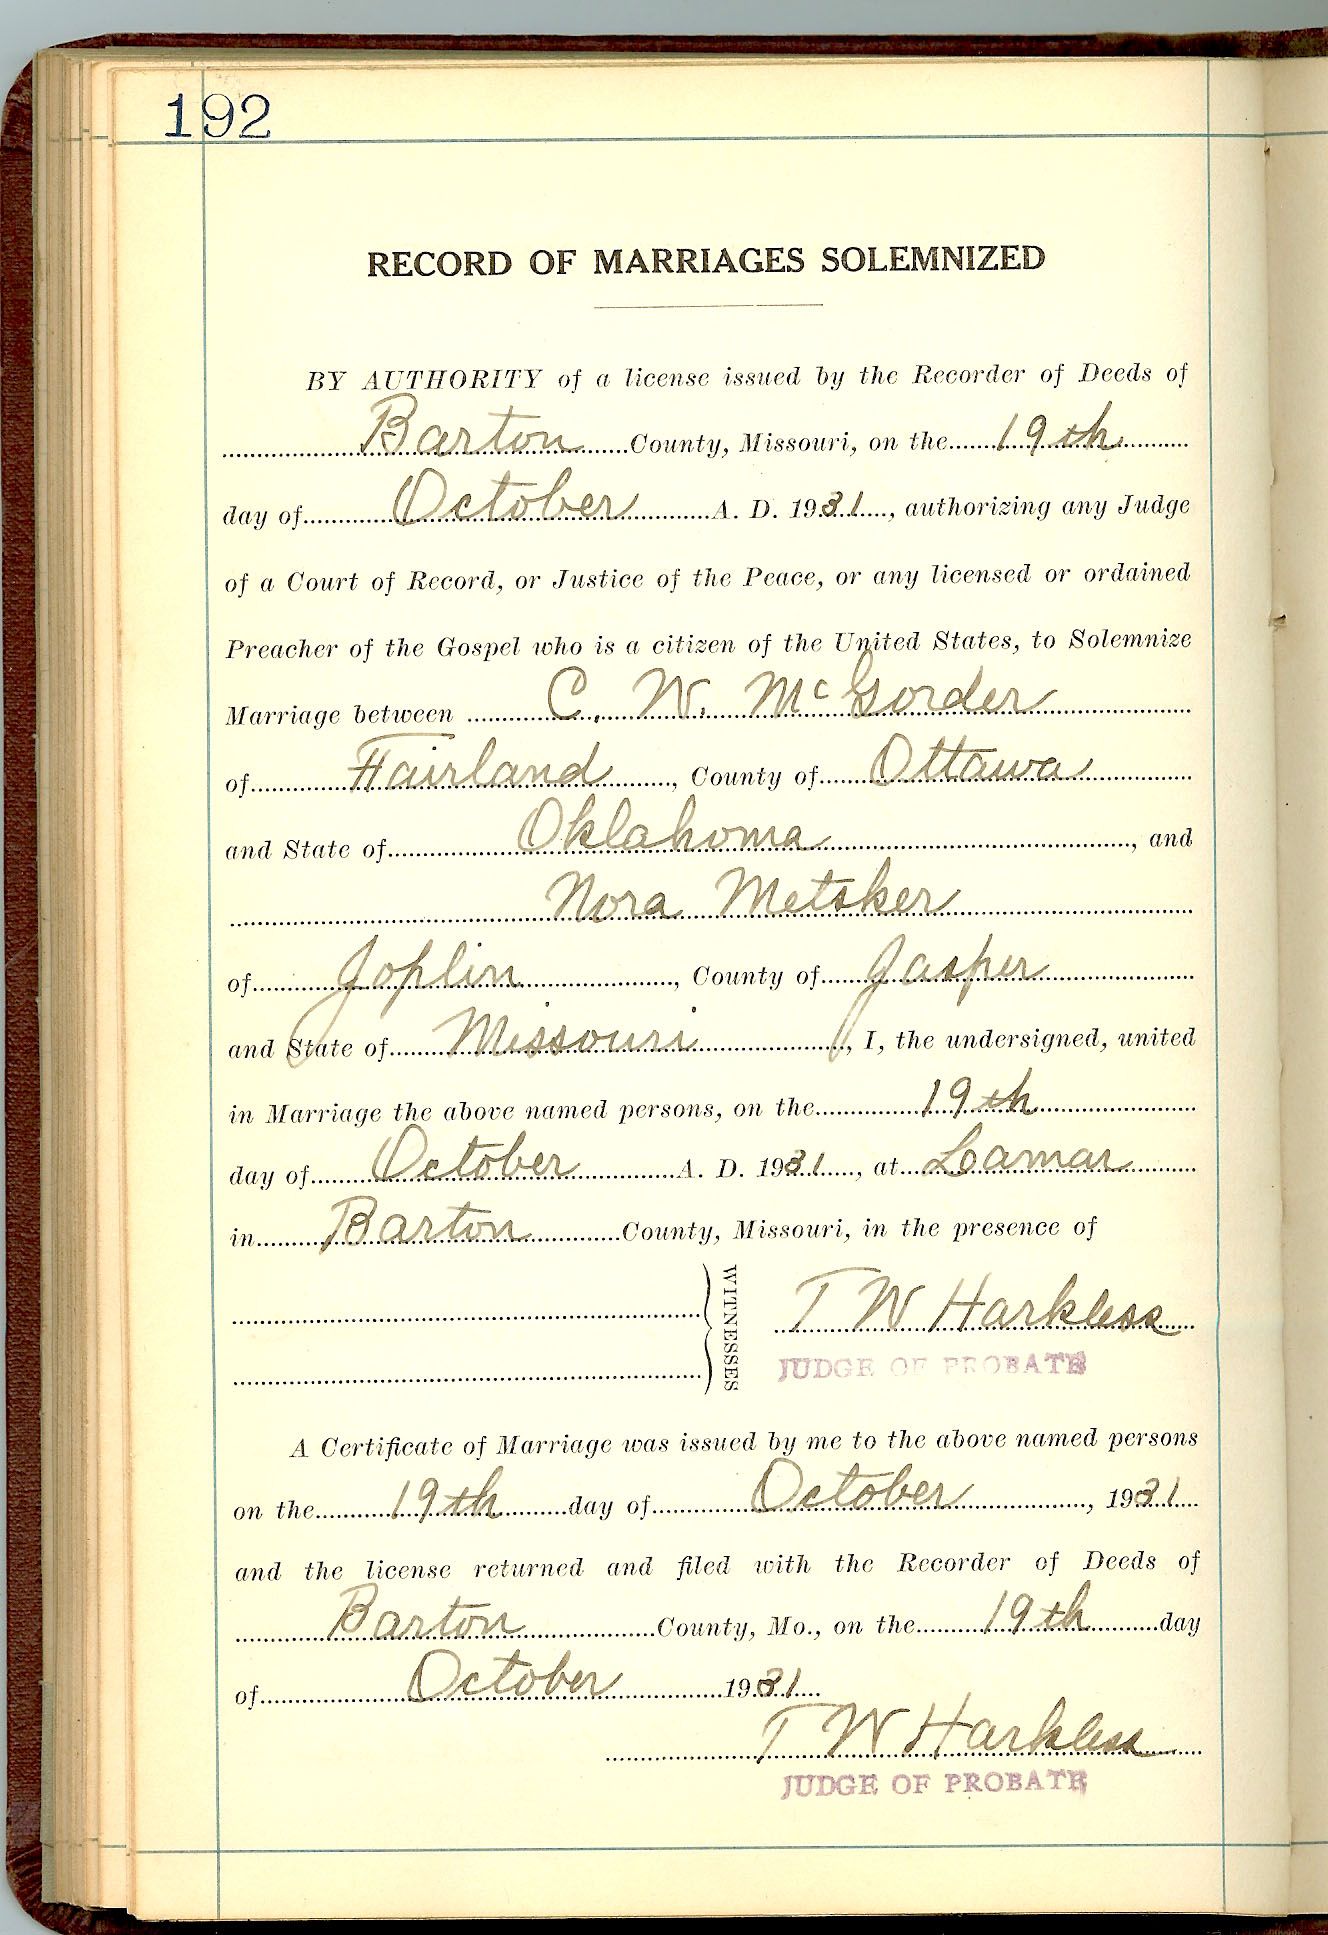 192
RECORD OF MARRIAGES SOLEMNIZED
BY AUTHORITY of a license issued by the Recorder of Deeds of
Barton County, Missouri, on the 19th
day of October A. D. 1931, authorizing any Judge
of a Court of Record, or Justice of the Peace, or any licensed or ordained
Preacher of the Gospel who is a citizen of the United States, to Solemnize
Marriage between C. W. McGorder
of Fairland, County of Ottawa
and State of Oklahoma, and
Nora Metsker
of Joplin, County of Jasper
and State of Missouri, I, the undersigned, united
in Marriage the above named persons, on the 19th
day of October A. D. 1931, at Lamar
in Barton County, Missouri, in the presence of
WITNESSES
T W Harkless
JUDGE OF PROBATE
A Certificate of Marriage was issued by me to the above named persons
on the 19th day of October, 1931
and the license returned and filed with the Recorder of Deeds of
Barton County, Mo., on the 19th day
of October 1931
T W Harkless
JUDGE OF PROBATE